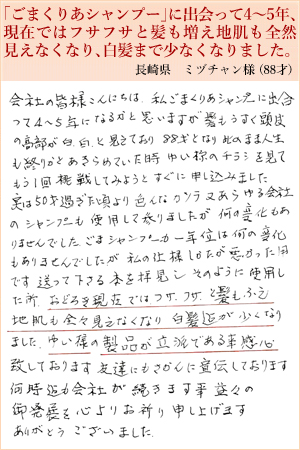 「ごまくりあシャンプー」に出会って4～5年、
現在ではフサフサと髪も増え地肌も全然
見えなくなり、白髪まで少なくなりました。
長崎県　ミヅチャン様(88才)
会社の皆様こんにちは、私ごまくりあシャンプーに出合
って4～5年になるかと思いますが髪もうすく頭皮
の高部が白、白、と見えており88才となり此のまま人生
も終りかとあきらめていた時ゆい禄のチラシを見て
もう1回挑戦してみようとすぐに申し込みました
実は50才過ぎた頃より色んなカツラ又あらゆる会社
のシャンプーも使用して参りましたが何の変化もあ
りませんでした。ごまシャンプーカ一年位は何の変化
もありませんでしたが私の仕様しかたが悪かった用
です送って下さる本を拝見しそのように使用し
た所、おどろき現在ではフサ、フサ、と髪もふえ
地肌も全々見えなくなり白髪迄が少くなり
ました、ゆい禄の製品が立派である事感心
致しております友達にもさかんに宣伝しております
何時迄も会社が続きます事益々の
御発展を心よりお祈り申し上げます
ありがとうございました。